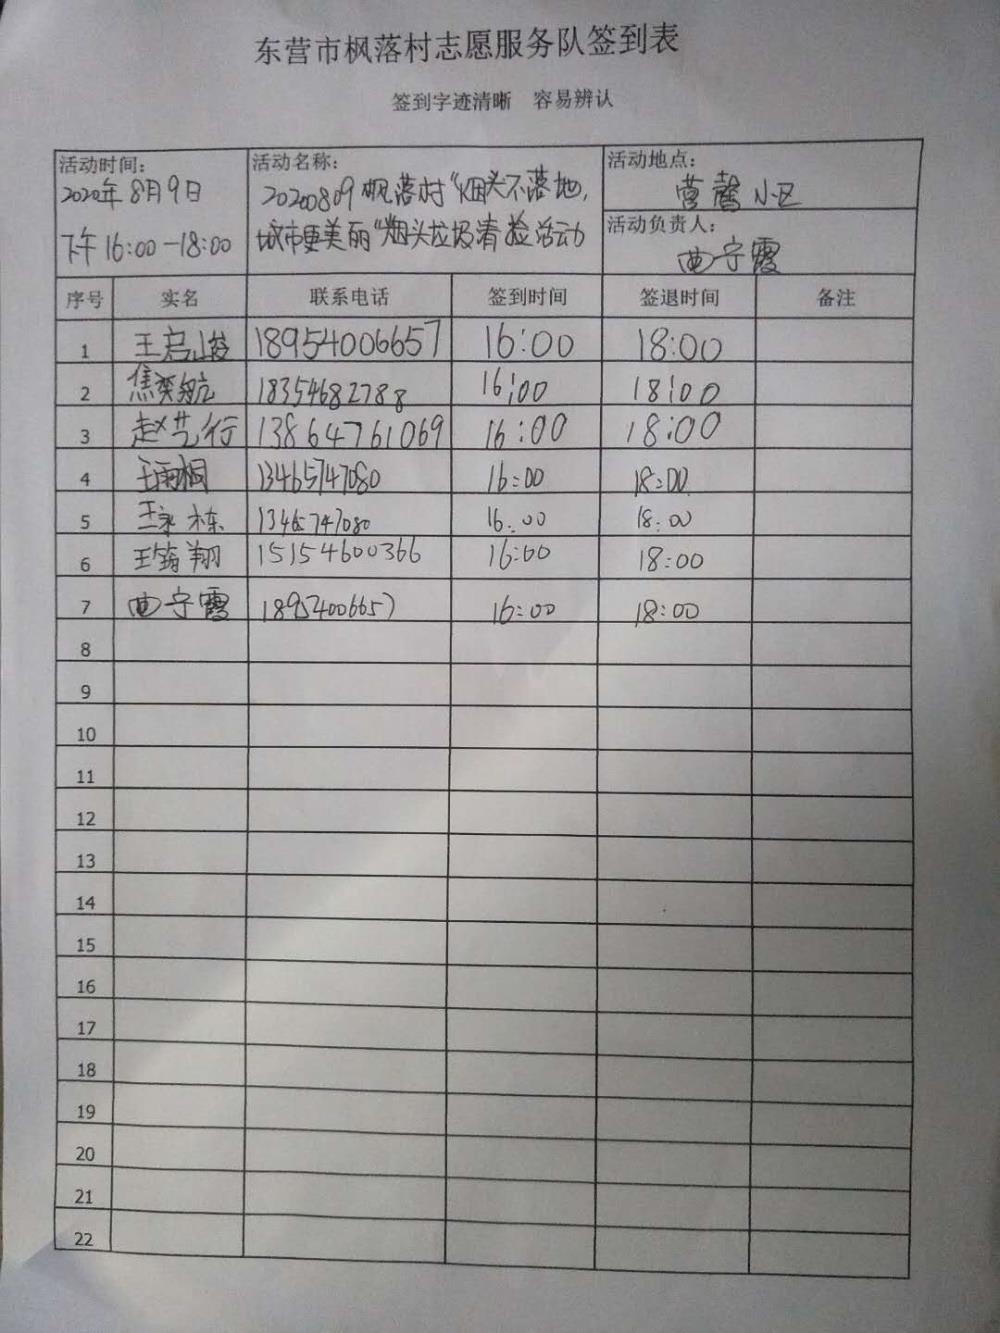 东营市枫落村志愿服务队签到表
签到字迹清晰 容易辨认
活动时间:
2020年8月9日
下午16:00-18:00
活动名称:
20200809枫落村"烟头不落地,
城市更美丽"烟头垃圾清捡活动
活动地点:
营馨小区
活动负责人:
曲守霞
序号 实名 联系电话 签到时间 签退时间 备注
1 王启 18954006657 16:00 18:00
2 焦奕航 18354682788 16:00 18:00
3 赵艺行 13864761069 16:00 18:00
4 王雨桐 13465747080 16:00 18:00
5 王永栋 13465747080 16:00 18:00
6 王筠翔 15154600366 16:00 18:00
7 曲守霞 18954006657 16:00 18:00
8
9
10
11
12
13
14
15
16
17
18
19
20
21
22